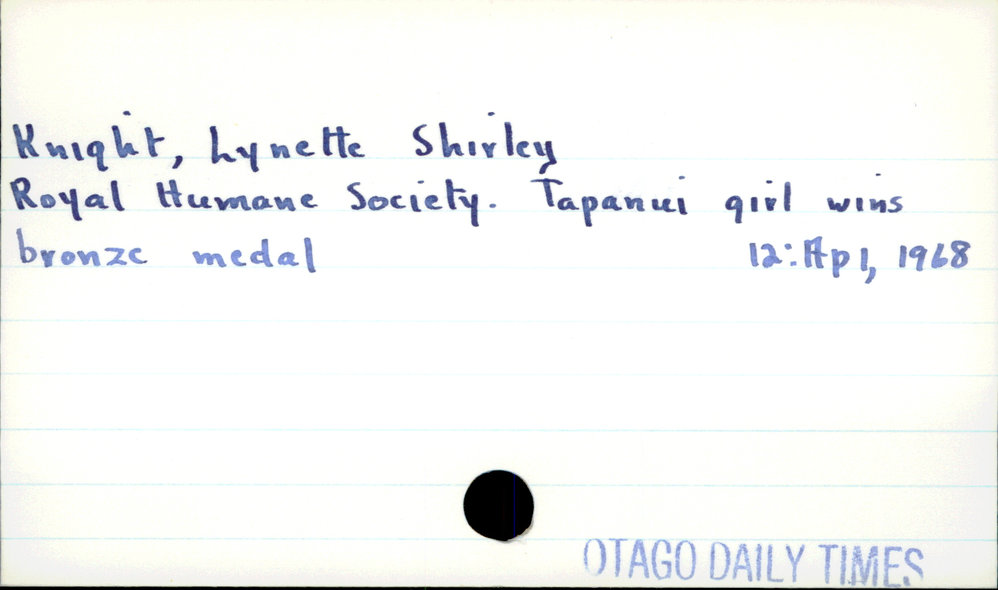 Knight, Lynette Shirley
Royal Humane Society. Tapanui girl wins
bronze medal 12: Ap 1, 1968
OTAGO DAILY TIMES